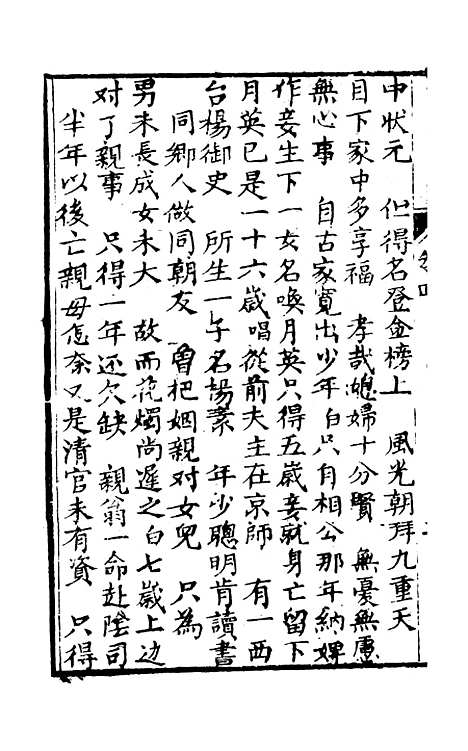 中狀元　但得名登金榜上　風光朝拜九重天
目下家中多享福　孝哉媳婦十分賢　無憂無慮
無心事　自古家寬出少年白只自相公那年納婢
作妾生下一女名喚月英只得五歲妾就身亡留下
月英已是一十六歲唱從前夫主在京師　有一西
台楊御史　所生一子名楊素　年少聰明肯讀書
同鄉人做同朝友　曾把姻親對女兒　只為
男未長成女未大　故而花燭尚遲之白七歲上边
对了親事　只得一年还欠缺　親翁一命赴陰司
半年以後亡親母怎奈又是清官未有資　只得